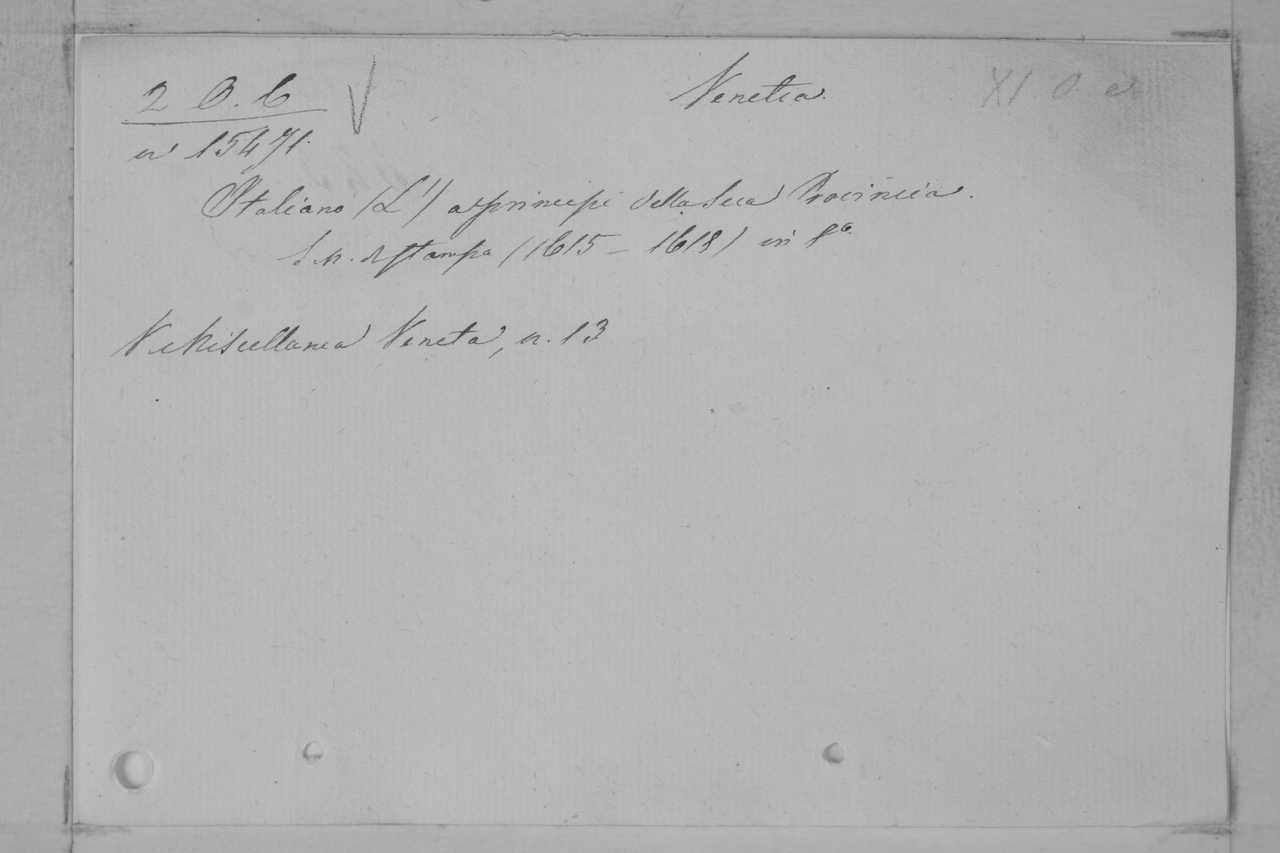 2 O. 6
Venetia.
XI O. e
n 15471.
Italiano (L') a' principi della sua Provincia.
S. N. di stampa (1615 - 1618) in 8º
V. Miscellanea Veneta, n. 13